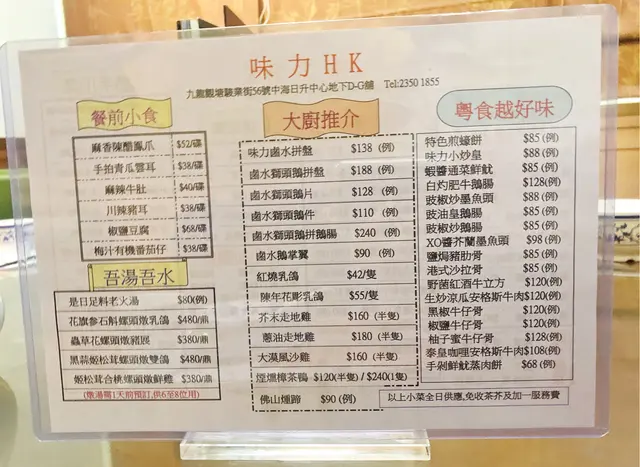 味力HK
九龍觀塘駿業街56號中海日升中心地下D-G舖 Tel:2350 1855
餐前小食
麻香陳醋鳳爪 $52/碟
手拍青瓜雲耳 $38/碟
麻辣牛肚 $40/碟
川辣豬耳 $38/碟
椒鹽豆腐 $68/碟
梅汁有機番茄仔 $38/碟
吾湯吾水
是日足料老火湯 $80(例)
花旗參石斛螺頭燉乳鴿 $480/鼎
蟲草花螺頭燉豬展 $380/鼎
黑蒜姬松茸螺頭燉雙鴿 $480/鼎
姬松茸合桃螺頭燉鮮雞 $380/鼎
(燉湯需1天前預訂,供6至8位用)
大廚推介
味力鹵水拼盤 $138 (例)
鹵水獅頭鵝拼盤 $188 (例)
鹵水獅頭鵝片 $128 (例)
鹵水獅頭鵝件 $110 (例)
鹵水獅頭鵝拼鵝腸 $240 (例)
鹵水鵝掌翼 $90 (例)
紅燒乳鴿 $42/隻
陳年花彫乳鴿 $55/隻
芥末走地雞 $160 (半隻)
蔥油走地雞 $180 (半隻)
大漠風沙雞 $160 (半隻)
煙燻樟茶鴨 $120(半隻) / $240(1隻)
佛山燻蹄 $90 (例)
粵食越好味
特色煎蠔餅 $85 (例)
味力小炒皇 $88 (例)
蝦醬通菜鮮魷 $85 (例)
白灼肥牛鵝腸 $128(例)
豉椒炒墨魚頭 $88 (例)
豉油皇鵝腸 $85 (例)
豉椒炒鵝腸 $85 (例)
XO醬芥蘭墨魚頭 $98 (例)
鹽焗豬肋骨 $85 (例)
港式沙拉骨 $85 (例)
野菌紅酒牛立方 $120(例)
生炒涼瓜安格斯牛肉$120(例)
黑椒牛仔骨 $120(例)
椒鹽牛仔骨 $120(例)
柚子蜜牛仔骨 $120(例)
泰皇咖喱安格斯牛肉$108(例)
手剁鮮魷蒸肉餅 $68 (例)
以上小菜全日供應,免收茶芥及加一服務費